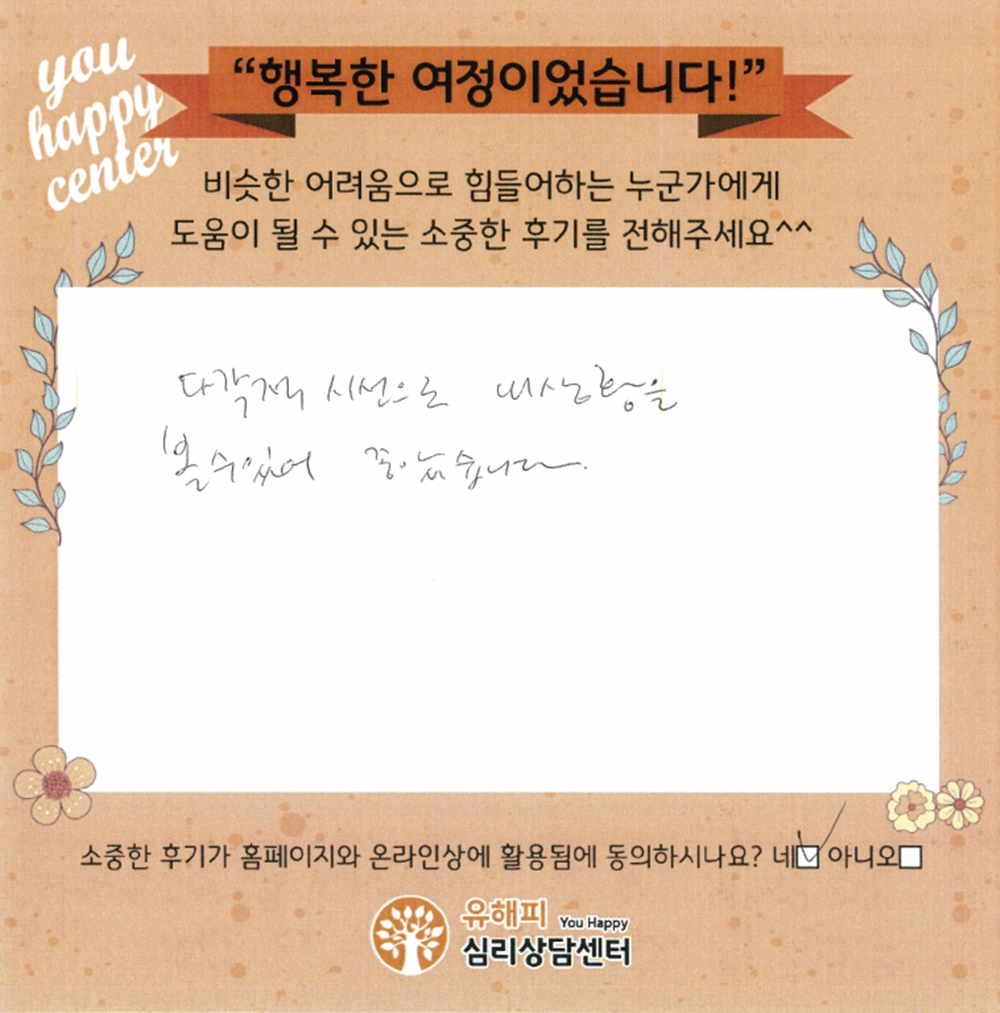 you
happy
center
“행복한 여정이었습니다!”
비슷한 어려움으로 힘들어하는 누군가에게
도움이 될 수 있는 소중한 후기를 전해주세요^^
다각적 시선으로 내상황을
볼수있어 좋았습니다.
소중한 후기가 홈페이지와 온라인상에 활용됨에 동의하시나요? 네 아니오
유해피 You Happy
심리상담센터